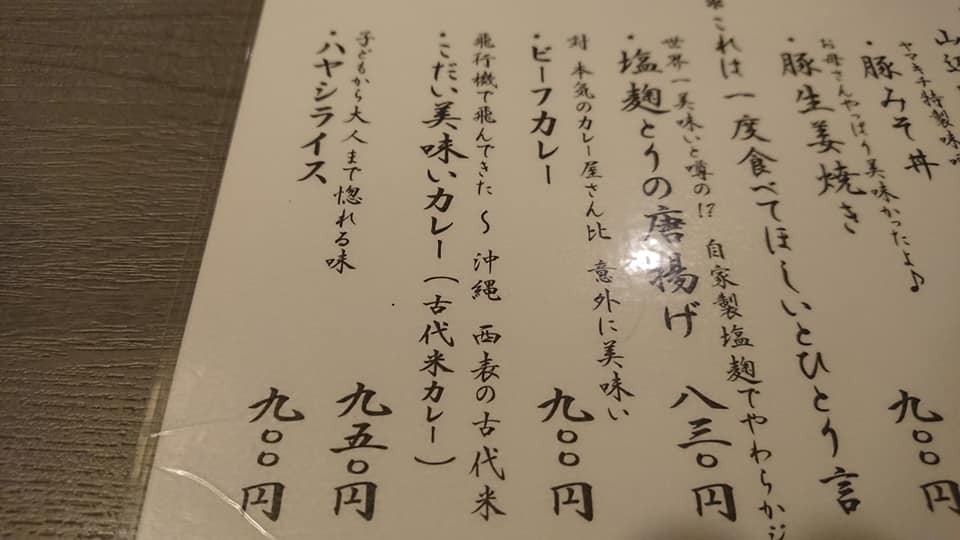 山
ヤマキチ特製味
・豚みそ丼
お母さんやっぱり美味かったよ♪
・豚生姜焼き 九〇〇円
これは一度食べてほしいとひとり言
世界一美味いと噂の!? 自家製塩麹でやわらかジ
・塩麹とりの唐揚げ 八三〇円
対 本気のカレー屋さん比 意外に美味い
・ビーフカレー 九〇〇円
飛行機で飛んできた〜 沖縄 西表の古代米
・こだい美味いカレー(古代米カレー) 九五〇円
子どもから大人まで惚れる味
・ハヤシライス 九〇〇円